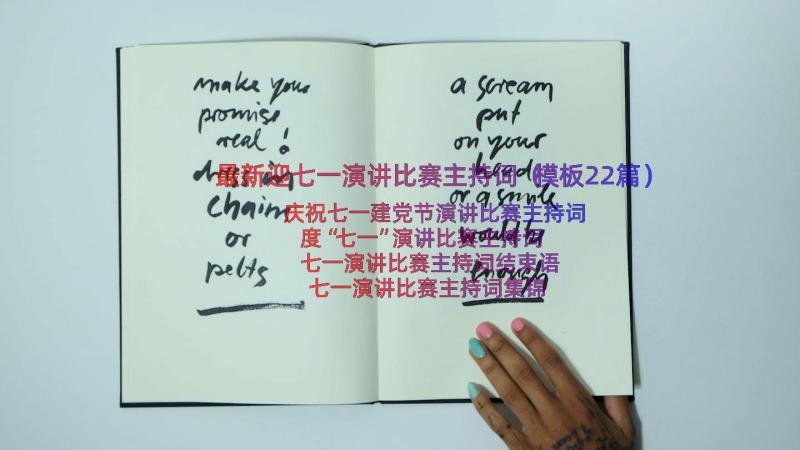 make your
promise
real!
dressing
chains
or
pelts
a scream
put
on your
head
or a smile
would be
enough
最新迎七一演讲比赛主持词（模板22篇）
庆祝七一建党节演讲比赛主持词
度“七一”演讲比赛主持词
七一演讲比赛主持词结束语
七一演讲比赛主持词集锦